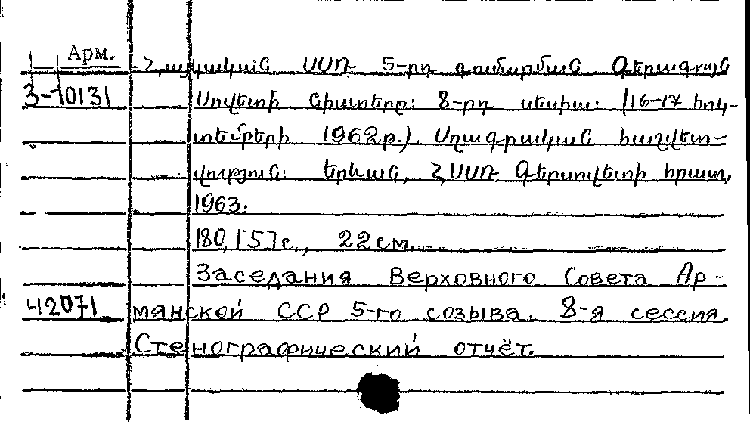 Арм. Հայկական ՍՍՌ 5-րդ գումարման Գերագույն
3-10131 Սովետի նիստերը: 8-րդ սեսիա: (16-17 հոկ-
տեմբերի 1962թ.). Սղագրական հաշվետ-
վություն: Երևան, ՀՍՍՌ Գերսովետի հրատ,
1963.
180, [5] с., 22 см.
Заседания Верховного Совета Ар-
42071 мянской ССР 5-го созыва. 8-я сессия
Стенографический отчёт.